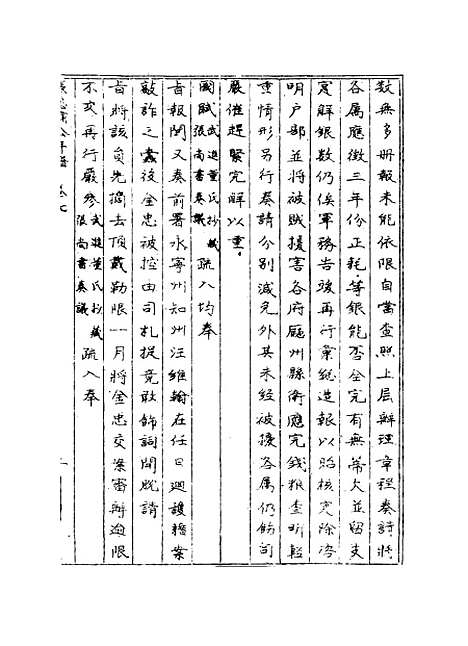 數無多冊報未能依限自當查照上屆辦理章程奏請將
各属應徵三年份正耗等銀能否全完有無蒂欠並留支
實解銀數仍俟軍務告竣再行彙總造報以昭核實除咨
明户部並將被賊擾害各府廳州縣衛應完錢粮查明輕
重情形另行奏請分別減免外其未經被擾各属仍飭司
嚴催趕緊完解以重
國賦武進董氏抄藏張尚書奏議疏入均奉
旨報聞又奏前署永寧州知州汪維翰在任日迴護籍案
敲詐之蠹後金忠被控由司札提竟敢飾詞開脱請
旨將該員先摘去頂戴勒限一月將金忠交案審辦逾限
不交再行嚴參武進董氏抄藏張尚書奏議疏入奉